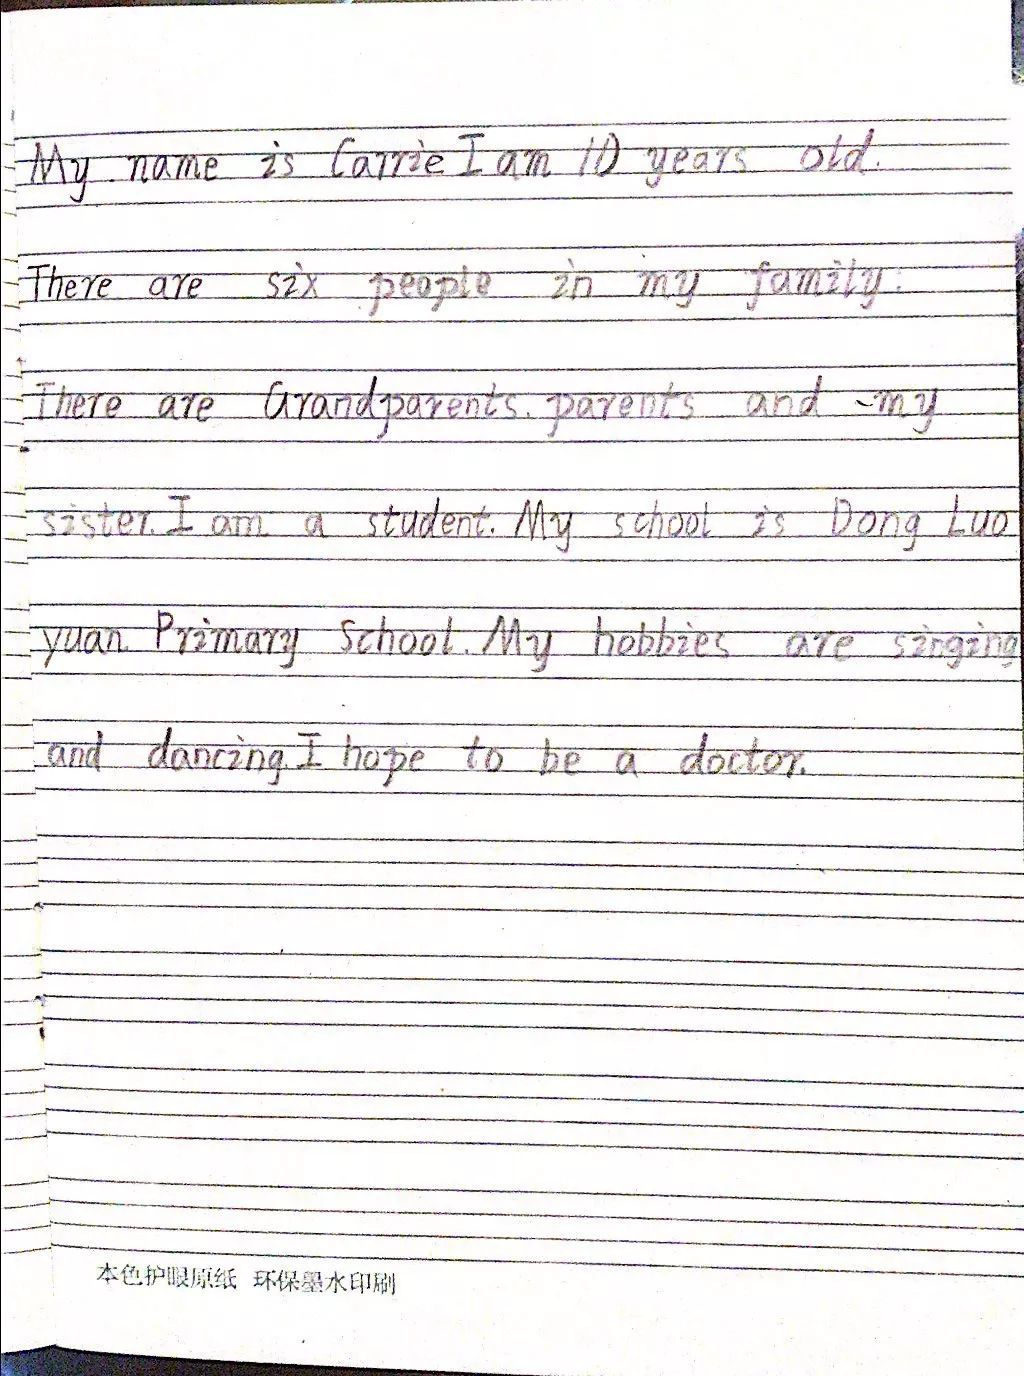 My name is Carrie I am 10 years old.
There are six people in my family.
There are Grandparents. parents and my
sister. I am a student. My school is Dong Luo
yuan Primary School. My hobbies are singing
and dancing I hope to be a doctor.
本色护眼原纸 环保墨水印刷